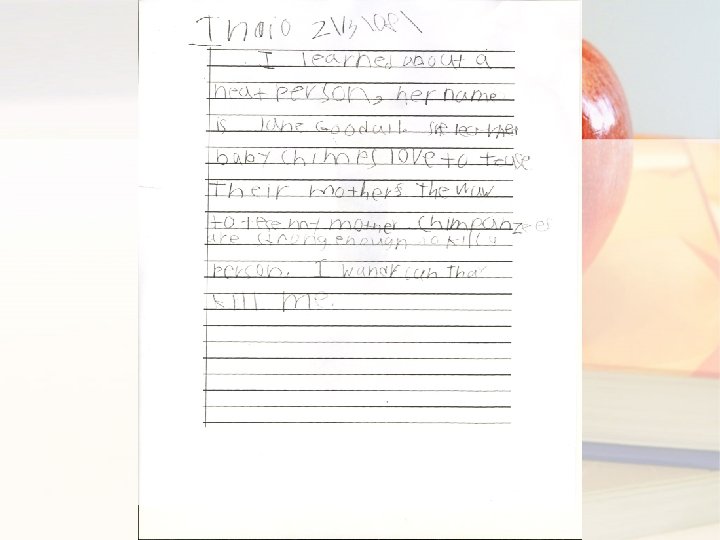 I learned about a
neat person, her name
is Jane Goodall. she
baby chimps love to
Their mothers The
to mother Chimpanzees
are strong enough to kill a
person. I wandr can thay
kill me.